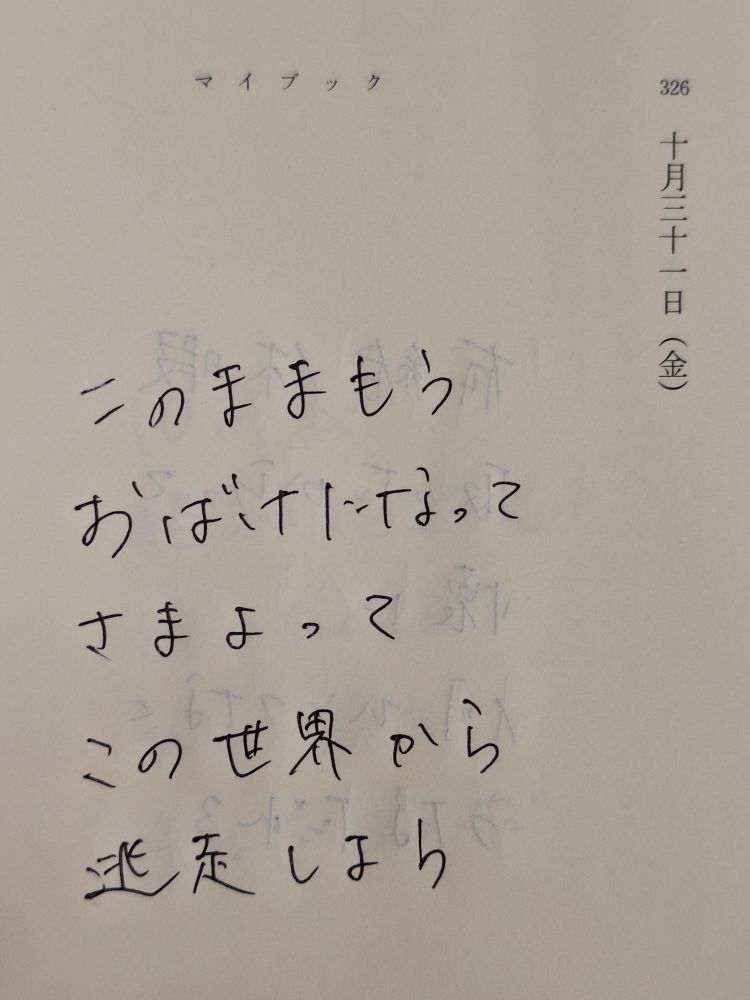 マイブック
326
十月三十一日(金)
このままもう
おばけになって
さまよって
この世界から
逃走しよう